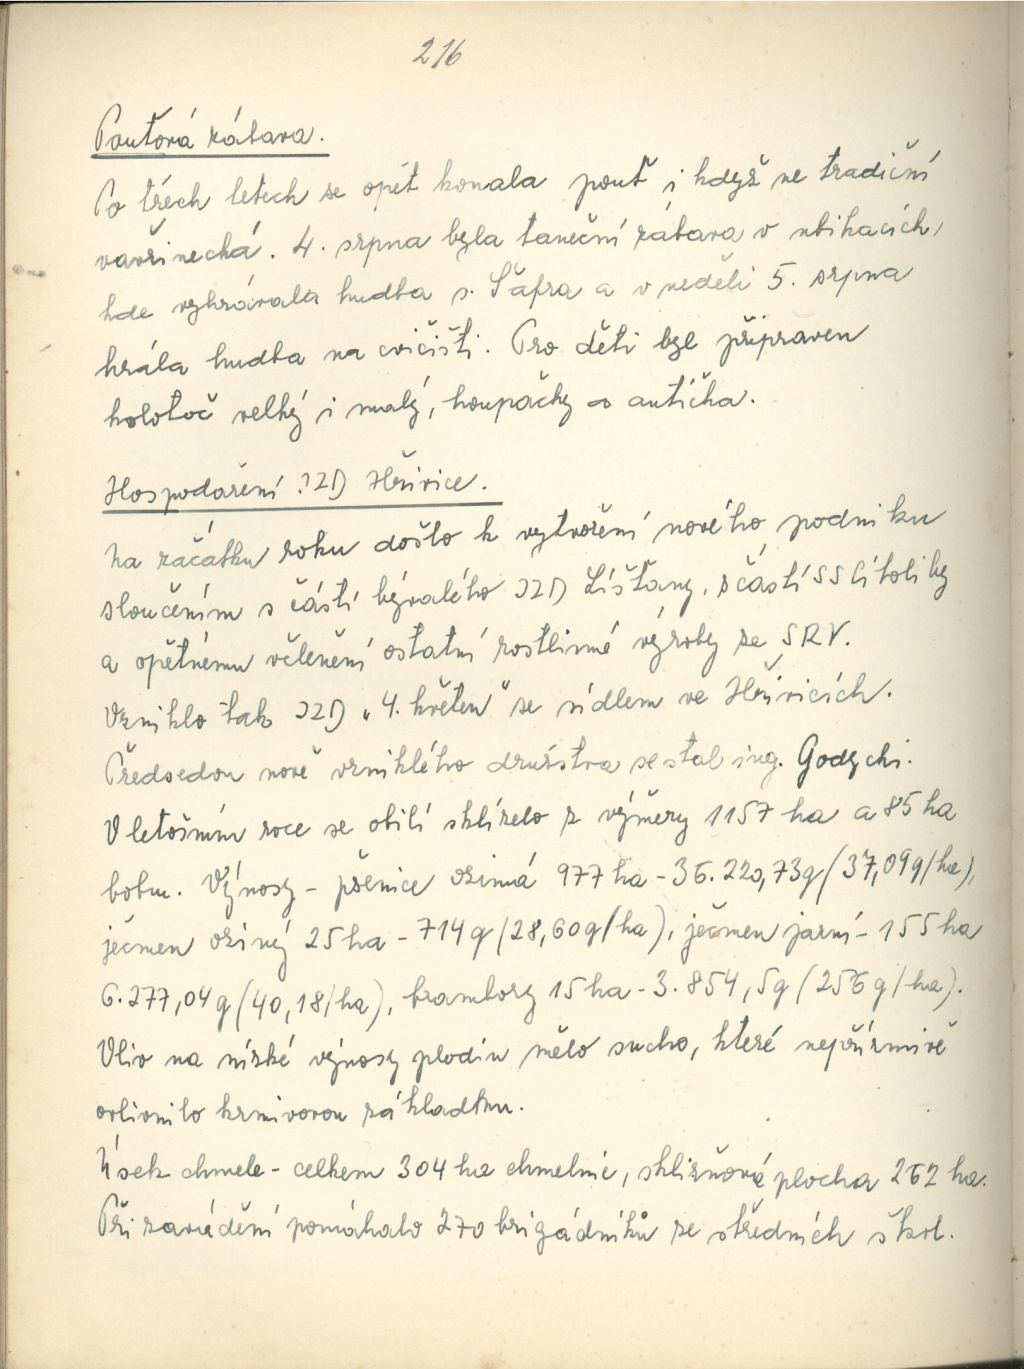 216
Pouťová zábava.
Po třech letech se opět konala pouť i když ne tradiční
vavřinecká. 4. srpna byla taneční zábava v ubikacích,
kde vyhrávala hudba p. Šafra a v neděli 5. srpna
hrála hudba na cvičišti. Pro děti byl připraven
kolotoč velký i malý, houpačky a autíčka.
Hospodaření JZD Hřivice.
Na začátku roku došlo k vytvoření nového podniku
sloučením s částí bývalého JZD Líšťany, s částí SS Cítoliby
a opětnému včlenění ostatní rostlinné výroby ze SRV.
Vzniklo tak JZD „4. květen" se sídlem ve Hřivicích.
Předsedou nově vzniklého družstva se stal ing. Godychi.
V letošním roce se obilí sklízelo z výměry 1157 ha a 85 ha
bobu. Výnosy - pšenice ozimá 977 ha - 36.220,73q (37,09q/ha),
ječmen ozimý 25 ha - 714q (28,60q/ha), ječmen jarní - 155 ha
6.277,04q (40,18/ha), brambory 15 ha - 3.854,5q (256q/ha).
Vliv na nízké výnosy plodin mělo sucho, které nepříznivě
ovlivnilo krmivovou základnu.
Úsek chmele - celkem 304 ha chmelnic, sklizňová plocha 262 ha.
Při zavádění pomáhalo 270 brigádníků ze středních škol.